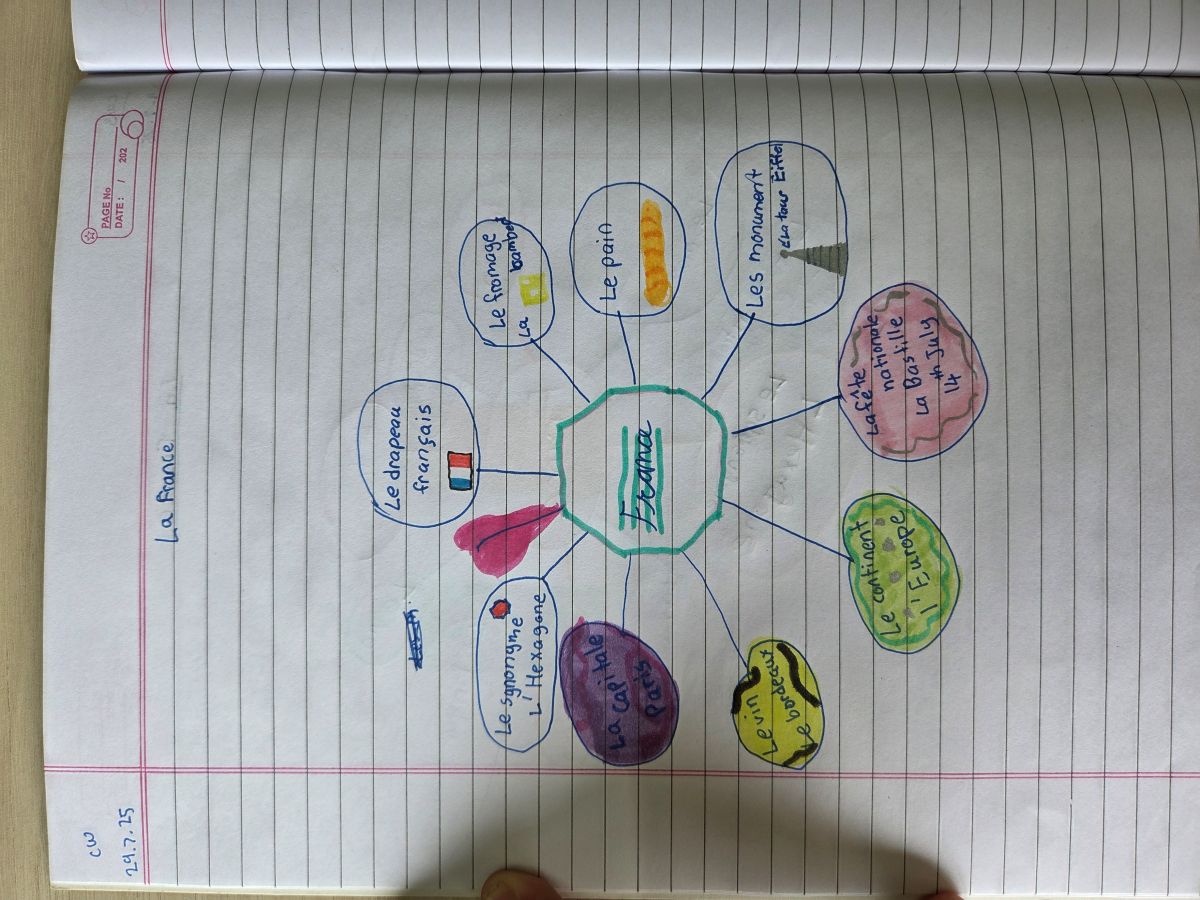 PAGE No
DATE: / 202
CW
29.7.25
La France
Le drapeau
français
Le fromage
La
Le pain
Les monument
La tour Eiffel
La fête
nationale
La Bastille
14th July
Le continent
l'Europe
Le vin
Le bordeaux
La capitale
paris
Le synonyme
L'Hexagone
France